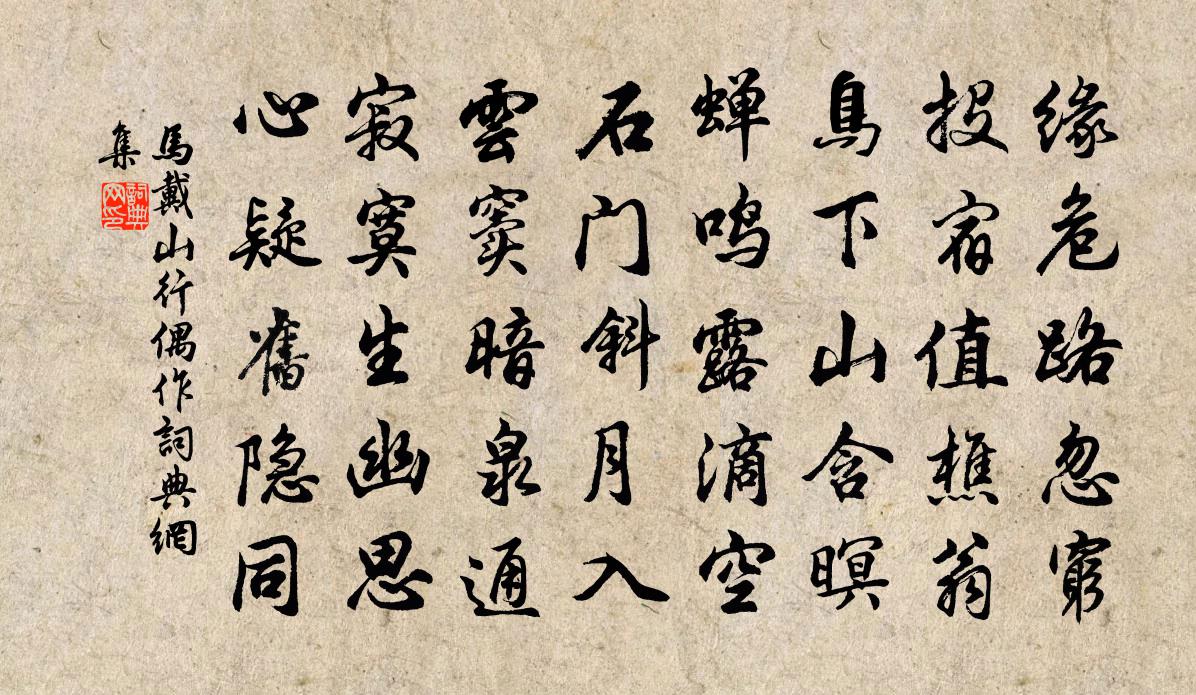 缘危路忽窮
投宿值樵翁
鳥下山含暝
蝉鸣露滴空
石门斜月入
雲窦暗泉通
寂寞生幽思
心疑舊隐同
馬戴山行偶作詞典網
集
詞典
网印